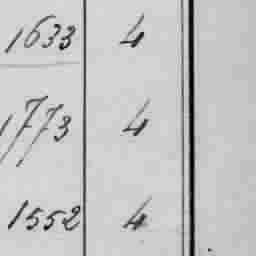 1633 4
1773 4
1552 4